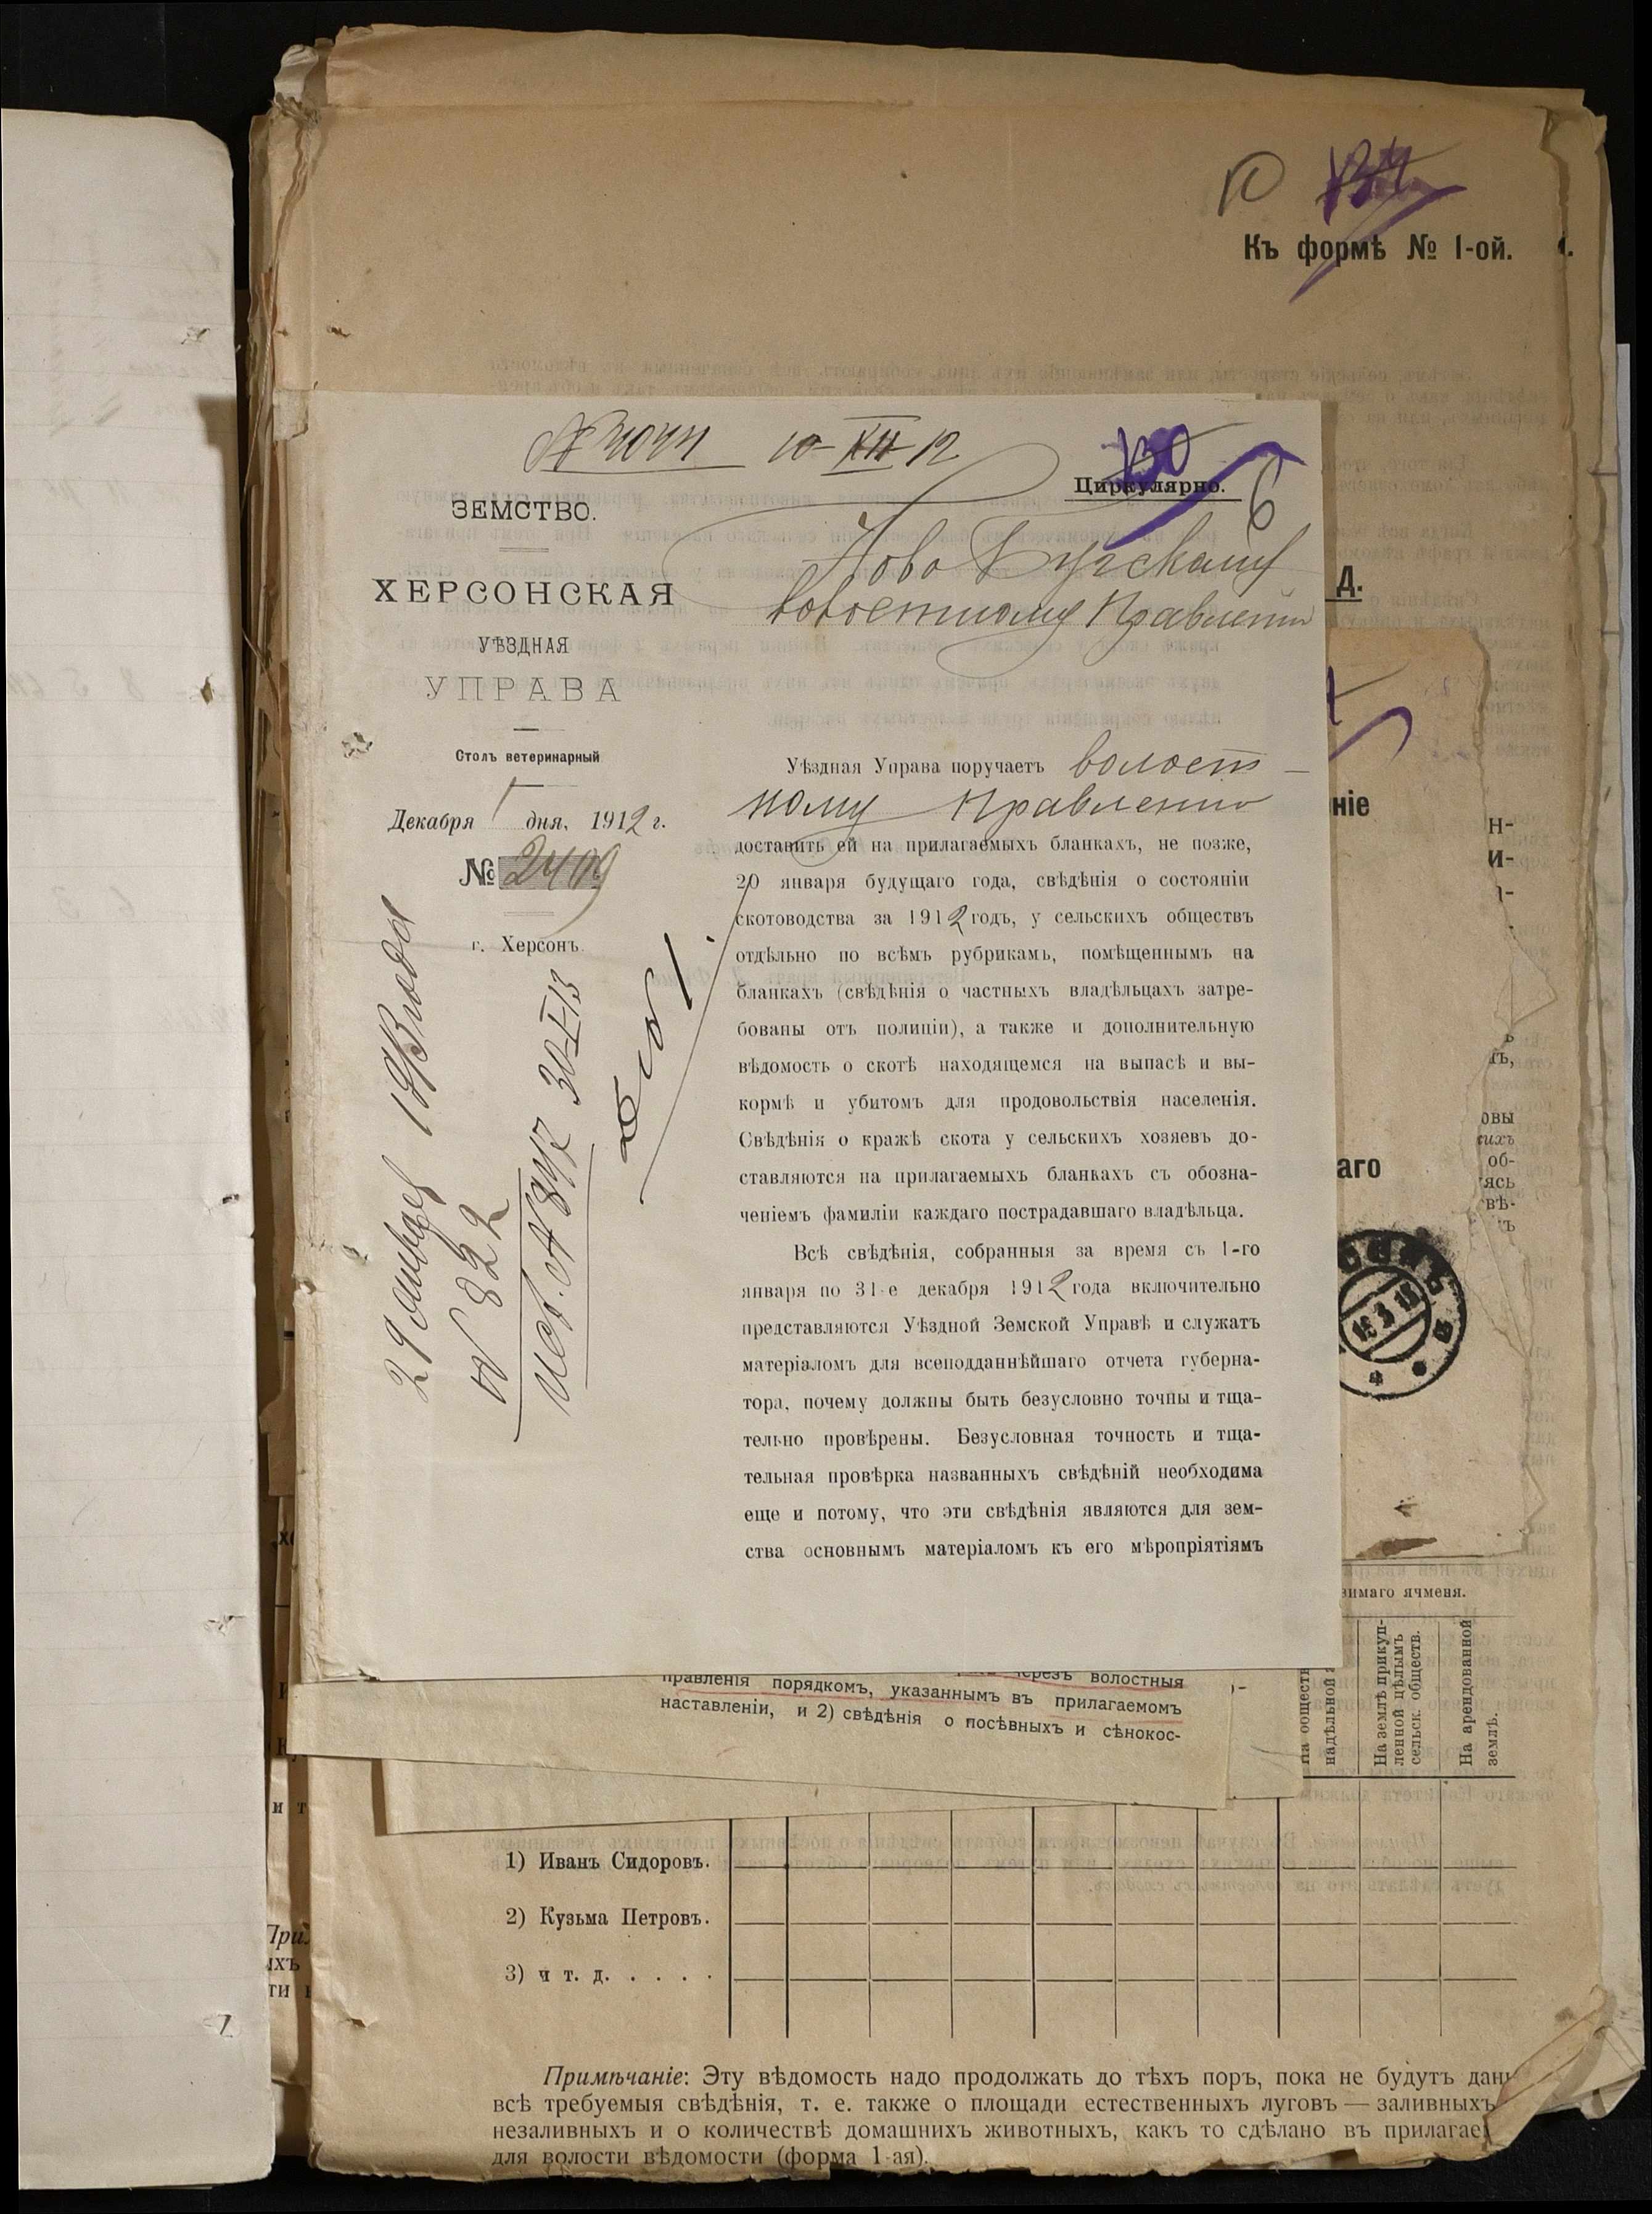 Къ формѣ № 1-ой.
10-XII-12
130
Циркулярно.
6
ЗЕМСТВО.
ХЕРСОНСКАЯ
УѢЗДНАЯ
УПРАВА
Столъ ветеринарный
Декабря дня, 1912 г.
№ 2409
г. Херсонъ.
Ново Бугскому
волостному Правленію
Уѣздная Управа поручаетъ волост-
ному Правленію
доставить ей на прилагаемыхъ бланкахъ, не позже,
20 января будущаго года, свѣдѣнія о состояніи
скотоводства за 1912 годъ, у сельскихъ обществъ
отдѣльно по всѣмъ рубрикамъ, помѣщеннымъ на
бланкахъ (свѣдѣнія о частныхъ владѣльцахъ затре-
бованы отъ полиціи), а также и дополнительную
вѣдомость о скотѣ находящемся на выпасѣ и вы-
кормѣ и убитомъ для продовольствія населенія.
Свѣдѣнія о кражѣ скота у сельскихъ хозяевъ до-
ставляются на прилагаемыхъ бланкахъ съ обозна-
ченіемъ фамиліи каждаго пострадавшаго владѣльца.
Всѣ свѣдѣнія, собранныя за время съ 1-го
января по 31-е декабря 1912 года включительно
представляются Уѣздной Земской Управѣ и служатъ
матеріаломъ для всеподданнѣйшаго отчета губерна-
тора, почему должны быть безусловно точны и тща-
тельно провѣрены. Безусловная точность и тща-
тельная провѣрка названныхъ свѣдѣній необходима
еще и потому, что эти свѣдѣнія являются для зем-
ства основнымъ матеріаломъ къ его мѣропріятіямъ
29 января
№ 822
30-I-13
Д.
ніе
аго
зимаго ячменя.
надѣльной
На землѣ прикуп-
ленной цѣлымъ
сельск. обществ.
На арендованной
землѣ.
черезъ волостныя
правленія порядкомъ, указаннымъ въ прилагаемомъ
наставленіи, и 2) свѣдѣнія о посѣвныхъ и сѣнокос-
1) Иванъ Сидоровъ.
2) Кузьма Петровъ.
3) и т. д. . . . .
Примѣчаніе: Эту вѣдомость надо продолжать до тѣхъ поръ, пока не будутъ дан
всѣ требуемыя свѣдѣнія, т. е. также о площади естественныхъ луговъ — заливныхъ
незаливныхъ и о количествѣ домашнихъ животныхъ, какъ то сдѣлано въ прилагае
для волости вѣдомости (форма 1-ая).